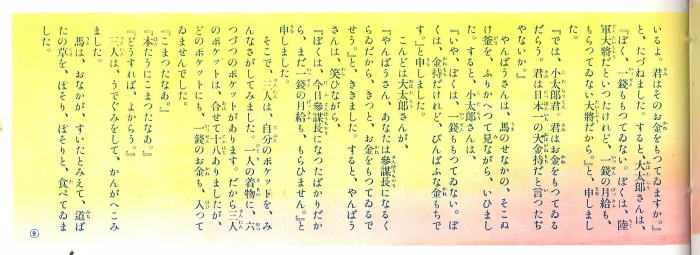 いるよ。君はそのお金をもつてゐますか。』
と、たづねました。すると、大太郎さんは、
『ぼく、一錢ももつてゐない。ぼくは、陸
軍大將だといつたけれど、一錢の月給も、
もらつてゐない大將だから。』と、申しまし
た。
『では、小太郎君。君はお金をもつてゐる
だらう。君は日本一の大金持だと言つたぢ
やないか。』
やんぼうさんは、馬のせなかの、そこぬ
け釜を、ふりかへつて見ながら、いひまし
た。すると、小太郎さんは、
『いや、ぼくは、一錢ももつてゐない。ぼ
くは、金持だけれど、びんばふな金もちで
す。』と申しました。
こんどは大太郎さんが、
『やんぼうさん、あなたは參謀長になるく
らゐだから、きつと、お金をもつてゐるで
せう。』と、ききました。すると、やんぼう
さんは、笑ひながら、
『ぼくは、今日參謀長になつたばかりだか
ら、まだ一錢の月給も、もらひません。』と
申しました。
そこで、三人は、自分のポケットを、み
んなさがしてみました。一人の着物に、六
つづつのポケットがあります。だから三人
のポケットは、合せて十八ありましたが、
どのポケットにも、一錢のお金も、入つて
ゐませんでした。
『こまつたなあ。』
『本たうにこまつたなあ。』
『どうすれば、よからう。』
三人は、うでぐみをして、かんがへこみ
ました。
馬は、おなかが、すいたとみえて、道ば
たの草を、ぽそり、ぽそりと、食べてゐま
した。
⑨